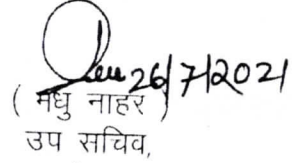 26/7/2021
( मधु नाहर )
उप सचिव,